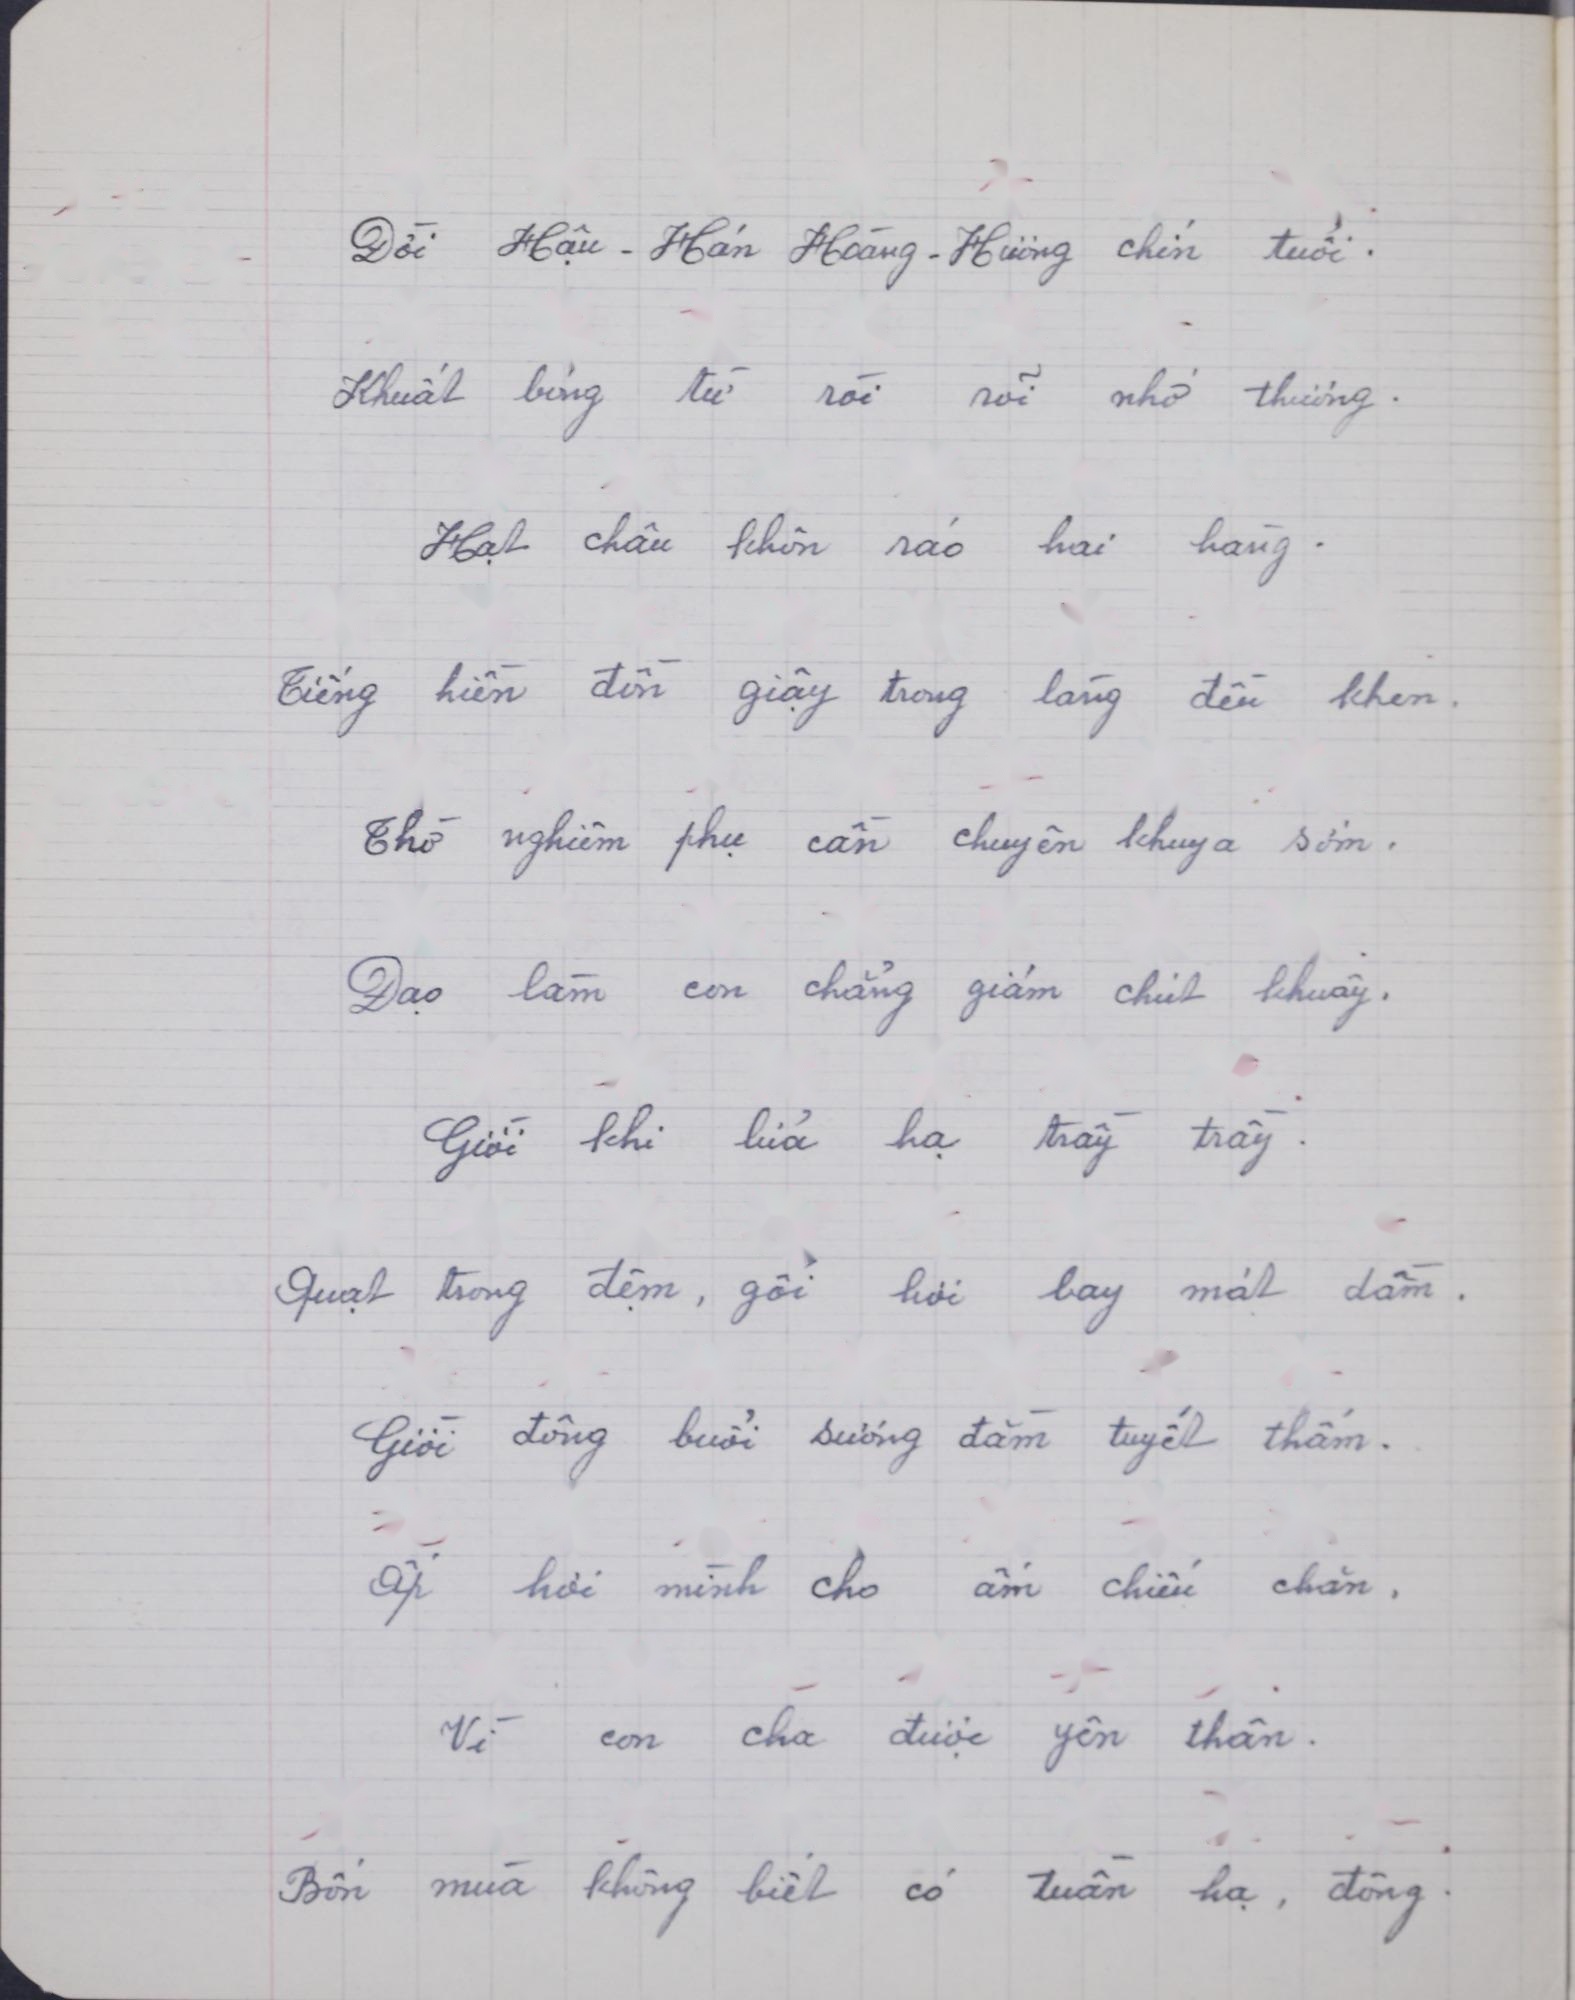 Đời Hậu-Hán Hoàng-Hương chín tuổi.
Khuất bóng từ rồi rỗi nhớ thương.
Hạt châu khôn ráo hai hàng.
Tiếng hiền đồn giậy trong làng đều khen.
Thờ nghiêm phụ cần chuyên khuya sớm.
Đạo làm con chẳng giám chút khuây.
Giời khi lửa hạ trầy trầy.
Quạt trong đệm, gối hơi bay mát dầm.
Giời đông buổi sương đầm tuyết thấm.
Ấp hơi mình cho ấm chiếu chăn.
Vì con cha được yên thân.
Bốn mùa không biết có tuần hạ, đông.